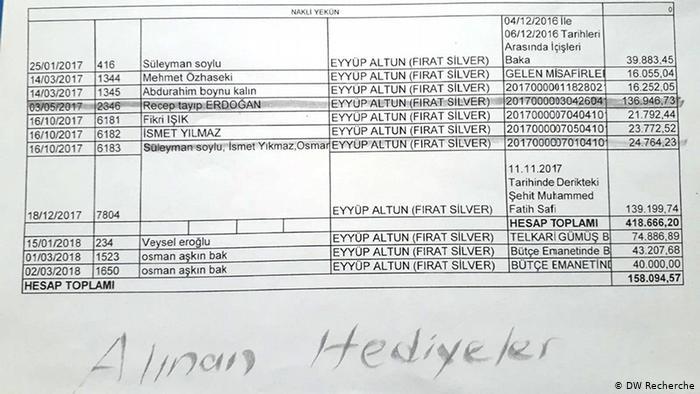 NAKLİ YEKÜN 0
04/12/2016 İle
06/12/2016 Tarihleri
Arasında İçişleri
25/01/2017 416 Süleyman soylu EYYÜP ALTUN (FIRAT SILVER) Baka 39.883,45
14/03/2017 1344 Mehmet Özhaseki EYYÜP ALTUN (FIRAT SİLVER) GELEN MİSAFİRLE 16.055,04
14/03/2017 1345 Abdurahim boynu kalın EYYÜP ALTUN (FIRAT SİLVER) 2017000001182802 16.252,05
03/05/2017 2346 Recep tayıp ERDOĞAN EYYÜP ALTUN (FIRAT SİLVER) 2017000003042604 136.946,73
16/10/2017 6181 Fikri IŞIK EYYÜP ALTUN (FIRAT SİLVER) 2017000007040410 21.792,44
16/10/2017 6182 İSMET YILMAZ EYYÜP ALTUN (FIRAT SİLVER) 2017000007050410 23.772,52
16/10/2017 6183 Süleyman soylu, İsmet Yıkmaz,Osmar EYYÜP ALTUN (FIRAT SİLVER) 2017000007010410 24.764,23
11.11.2017
Tarihinde Derikteki
Şehit Muhammed
18/12/2017 7804 EYYÜP ALTUN (FIRAT SİLVER) Fatih Safi 139.199,74
HESAP TOPLAMI 418.666,20
15/01/2018 234 Veysel eroğlu EYYÜP ALTUN (FIRAT SİLVER) TELKARİ GÜMÜŞ B 74.886,89
01/03/2018 1523 osman aşkın bak EYYÜP ALTUN (FIRAT SİLVER) Bütçe Emanetinde B 43.207,68
02/03/2018 1650 osman aşkın bak EYYÜP ALTUN (FIRAT SİLVER) BÜTÇE EMANETİND 40.000,00
HESAP TOPLAMI 158.094,57
Alınan Hediyeler
© DW Recherche